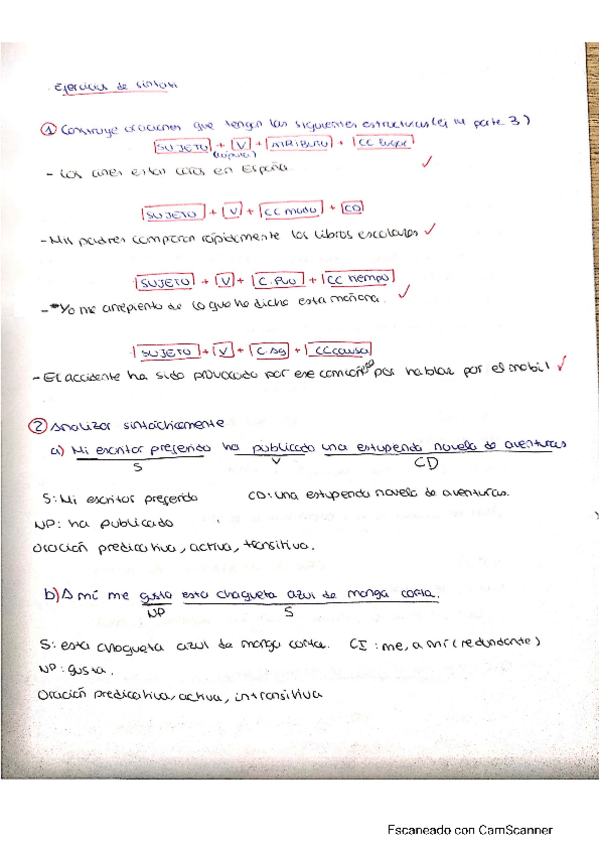 Ejercicios de sintaxis
① Construye oraciones que tengan las siguientes estructuras (ej 14 parte 3)
SUJETO + V + ATRIBUTO + CC lugar
(cópula)
- Los aires están caros en España.
SUJETO + V + CC modo + CD
- Mis padres compraron rápidamente los libros escolares
SUJETO + V + C. Rvo + CC tiempo
- Yo me arrepiento de lo que he dicho esta mañana.
SUJETO + V + C. Ag + CC causa
- El accidente ha sido provocado por ese camión por hablar por el mobil
② Analizar sintácticamente
a) Mi escritor preferido ha publicado una estupenda novela de aventuras
S V CD
S: Mi escritor preferido CD: una estupenda novela de aventuras.
NP: ha publicado
Oración predicativa, activa, transitiva.
b) A mí me gusta esta chaqueta azul de manga corta.
NP S
S: esta chaqueta azul de manga corta. CI: me, a mí (redundante)
NP: gusta.
Oración predicativa, activa, intransitiva
Escaneado con CamScanner